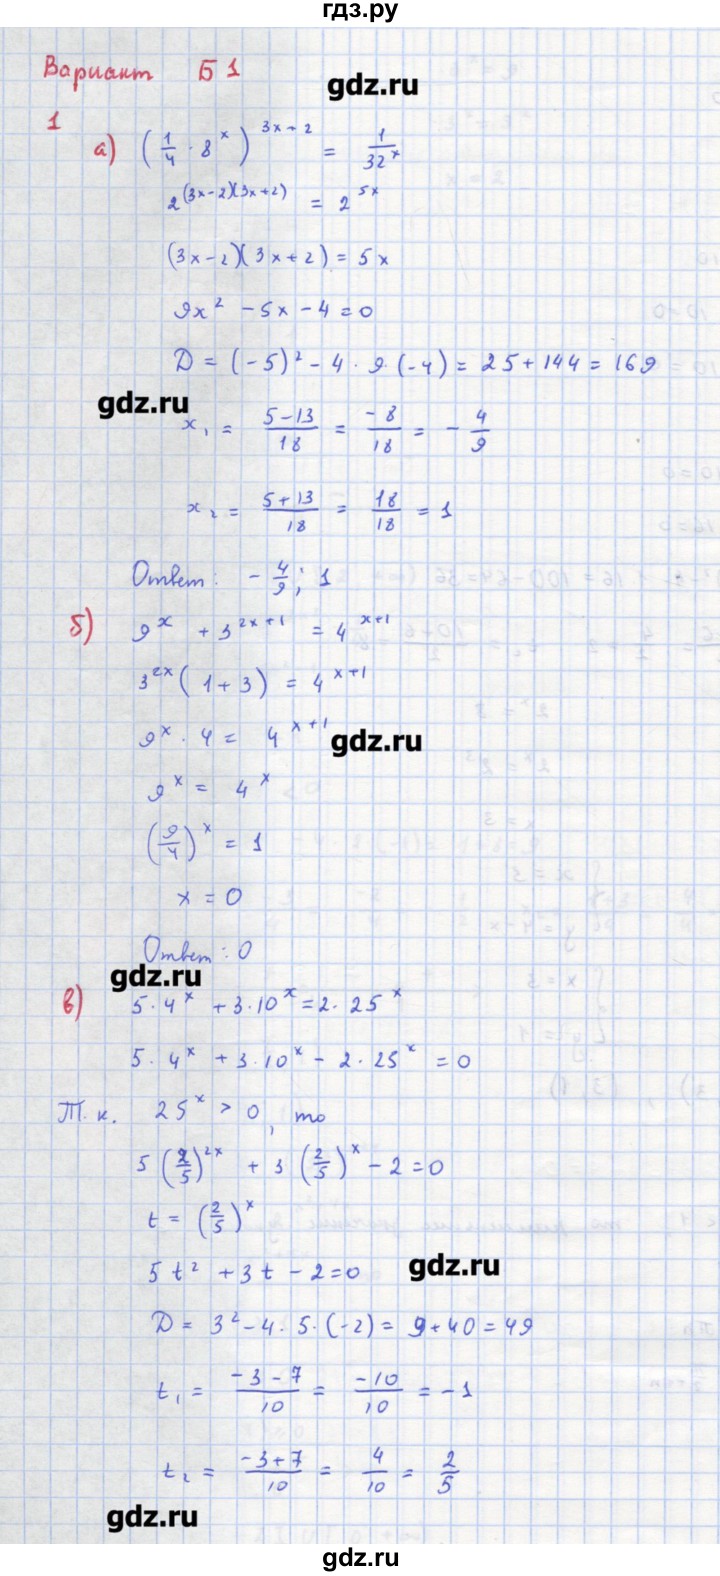 гдз.ру
Вариант Б1
gdz.ru
1
а) (1/4 · 8^x)^(3x+2) = 1/32^x
2^((3x-2)(3x+2)) = 2^(5x)
(3x-2)(3x+2) = 5x
9x² - 5x - 4 = 0
D = (-5)² - 4 · 9 · (-4) = 25 + 144 = 169
gdz.ru
x₁ = (5-13)/18 = -8/18 = -4/9
x₂ = (5+13)/18 = 18/18 = 1
Ответ: -4/9; 1
б) 9^x + 3^(2x+1) = 4^(x+1)
3^(2x) (1+3) = 4^(x+1)
9^x · 4 = 4^(x+1)
gdz.ru
9^x = 4^x
(9/4)^x = 1
x = 0
Ответ: 0
gdz.ru
в) 5·4^x + 3·10^x = 2·25^x
5·4^x + 3·10^x - 2·25^x = 0
Т.к. 25^x > 0, то
5(2/5)^(2x) + 3(2/5)^x - 2 = 0
t = (2/5)^x
5t² + 3t - 2 = 0
gdz.ru
D = 3² - 4·5·(-2) = 9 + 40 = 49
t₁ = (-3-7)/10 = -10/10 = -1
t₂ = (-3+7)/10 = 4/10 = 2/5
gdz.ru
gdz.ru